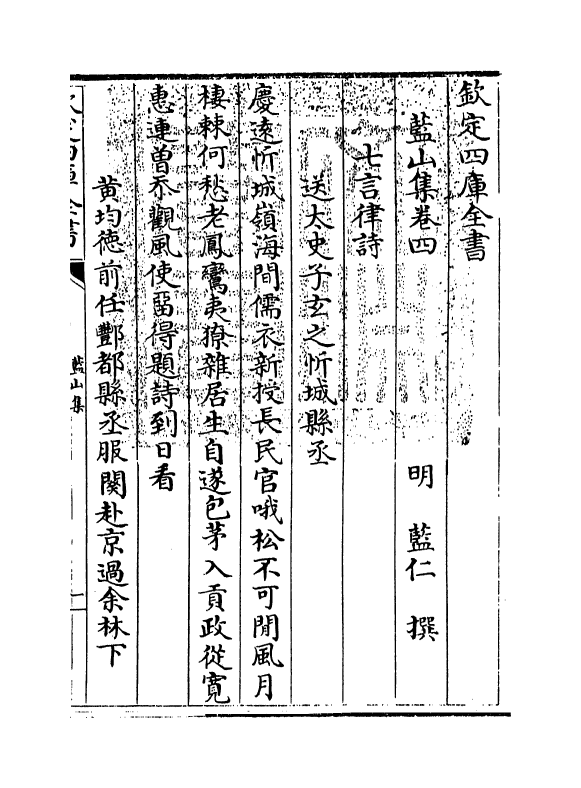 欽定四庫全書
藍山集卷四
明 藍仁 撰
七言律詩
送太史子玄之忻城縣丞
慶遠忻城嶺海間儒衣新授長民官哦松不可閒風月
棲棘何愁老鳳鸞夷獠雜居生自遂包茅入貢政從寬
惠連曽忝觀風使留得題詩到日看
黄均徳前任酆都縣丞服闋赴京過余林下
欽定四庫全書
藍山集
一